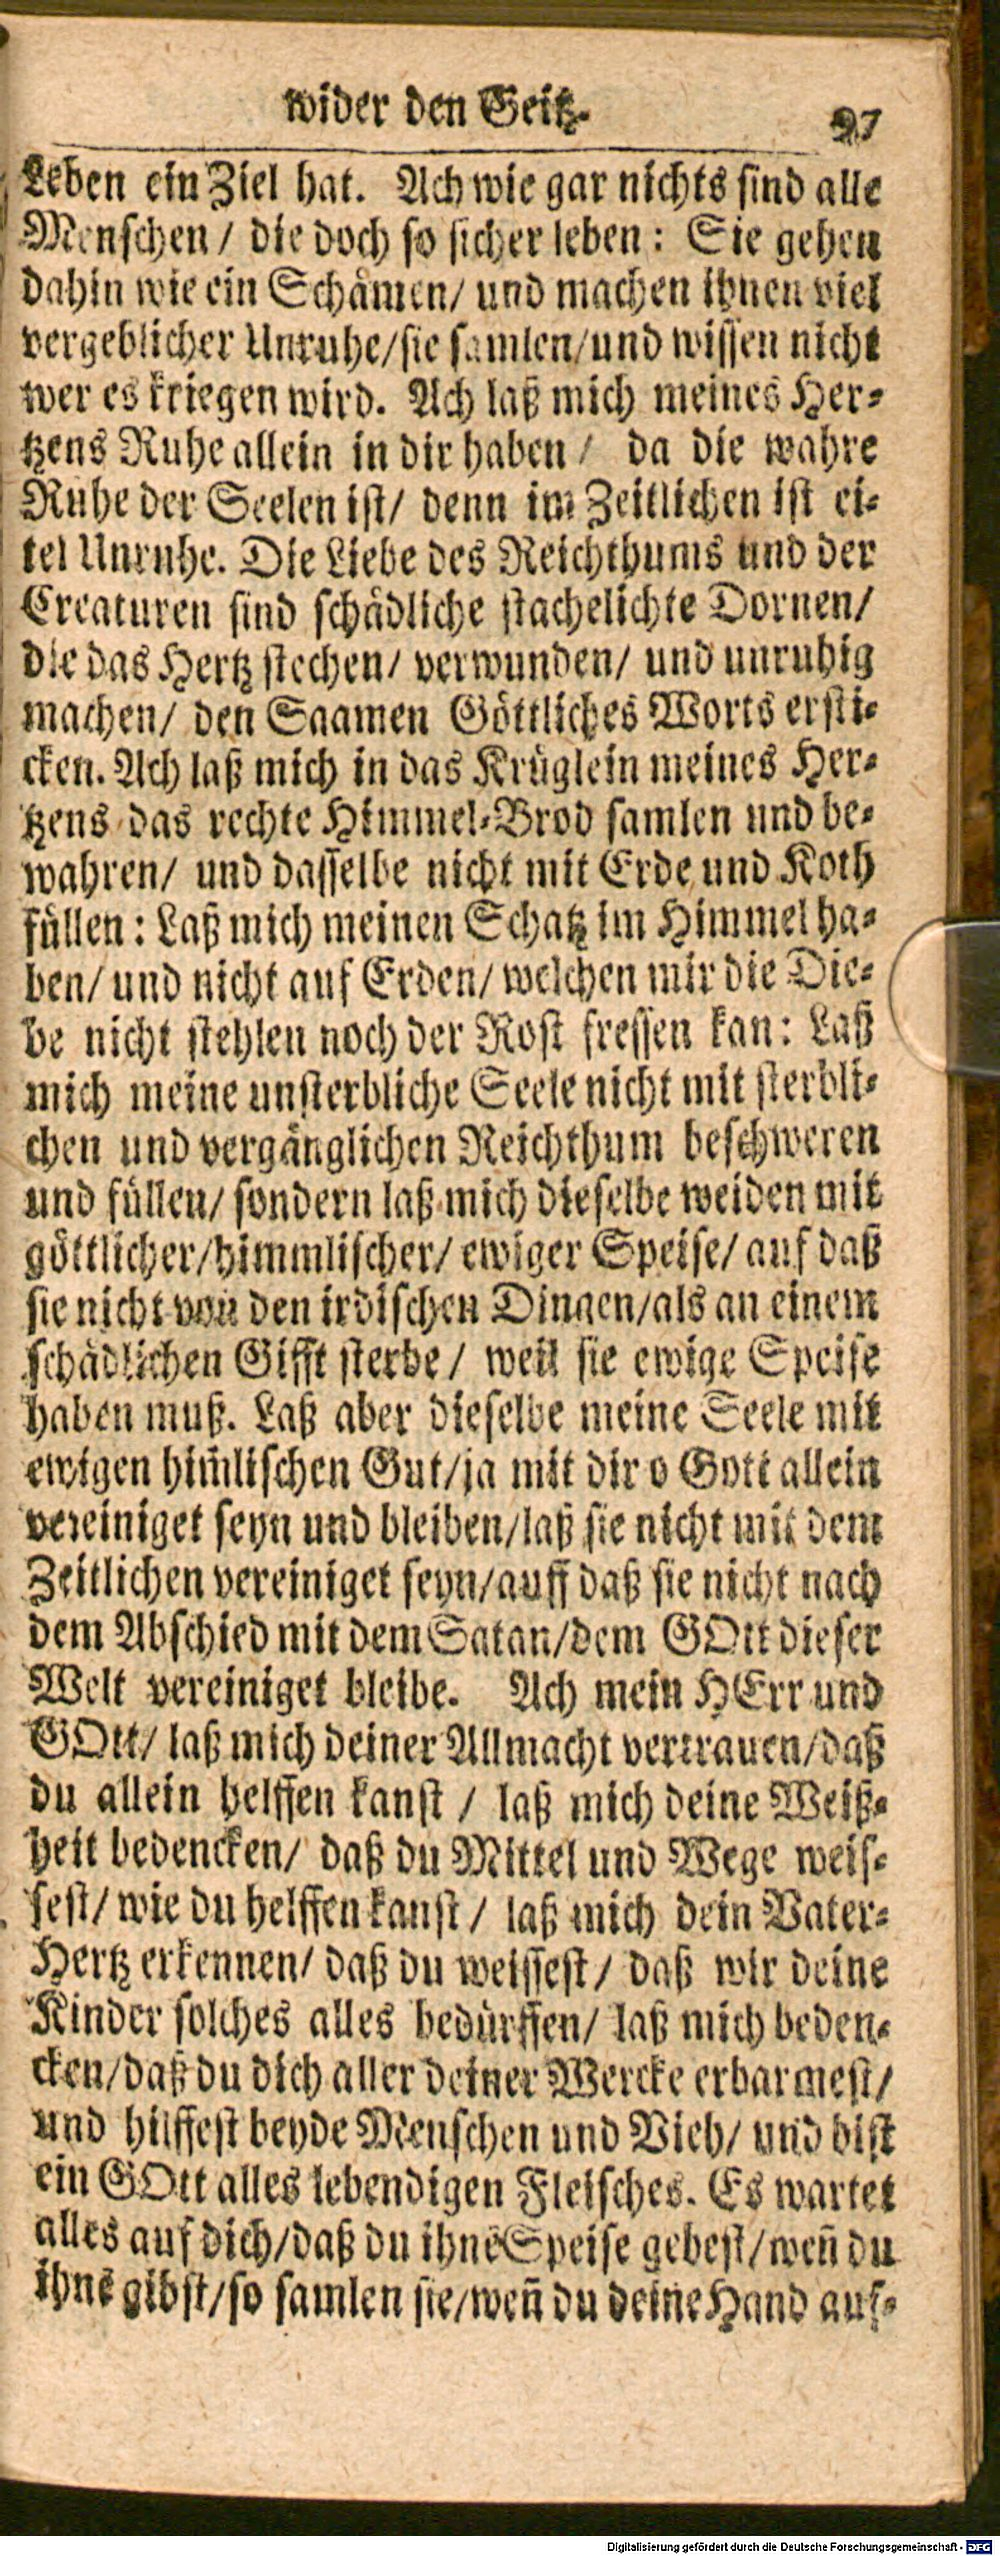 wider den Geitz. 97
Leben ein Ziel hat. Ach wie gar nichts sind alle
Menschen / die doch so sicher leben: Sie gehen
dahin wie ein Schämen/ und machen ihnen viel
vergeblicher Unruhe/sie samlen/und wissen nicht
wer es kriegen wird. Ach laß mich meines Her-
tzens Ruhe allein in dir haben / da die wahre
Ruhe der Seelen ist/ denn im Zeitlichen ist ei-
tel Unruhe. Die Liebe des Reichthums und der
Creaturen sind schädliche stachelichte Dornen/
die das Hertz stechen/ verwunden/ und unruhig
machen/ den Saamen Göttliches Worts ersti-
cken. Ach laß mich in das Krüglein meines Her-
tzens das rechte Himmel-Brod samlen und be-
wahren/ und dasselbe nicht mit Erde und Koth
füllen: Laß mich meinen Schatz im Himmel ha-
ben/ und nicht auf Erden/ welchen mir die Die-
be nicht stehlen noch der Rost fressen kan: Laß
mich meine unsterbliche Seele nicht mit sterbli-
chen und vergänglichen Reichthum beschweren
und füllen/ sondern laß mich dieselbe weiden mit
göttlicher/himmlischer/ ewiger Speise/ auf daß
sie nicht von den irdischen Dingen/als an einem
schädlichen Gifft sterbe / weil sie ewige Speise
haben muß. Laß aber dieselbe meine Seele mit
ewigen him̃lischen Gut/ja mit dir o Gott allein
vereiniget seyn und bleiben/laß sie nicht mit dem
Zeitlichen vereiniget seyn/auff daß sie nicht nach
dem Abschied mit dem Satan/dem GOtt dieser
Welt vereiniget bleibe. Ach mein HErr und
GOtt/ laß mich deiner Allmacht vertrauen/daß
du allein helffen kanst / laß mich deine Weiß-
heit bedencken/ daß du Mittel und Wege weis-
sest/ wie du helffen kanst / laß mich dein Vater-
Hertz erkennen/ daß du weissest/ daß wir deine
Kinder solches alles bedürffen/ laß mich beden-
cken/daß du dich aller deiner Wercke erbarmest/
und hilffest beyde Menschen und Vieh/ und bist
ein GOtt alles lebendigen Fleisches. Es wartet
alles auf dich/daß du ihnẽ Speise gebest/weñ du
ihnẽ gibst/so samlen sie/weñ du deine Hand auf-
Digitalisierung gefördert durch die Deutsche Forschungsgemeinschaft - DFG